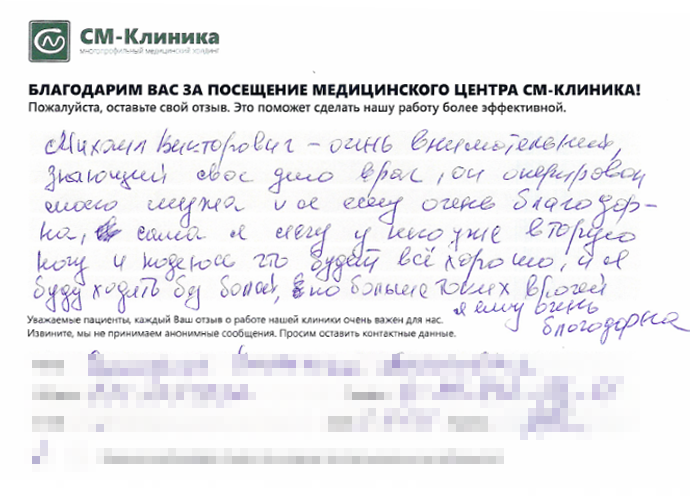 СМ-Клиника
многопрофильный медицинский холдинг
БЛАГОДАРИМ ВАС ЗА ПОСЕЩЕНИЕ МЕДИЦИНСКОГО ЦЕНТРА СМ-КЛИНИКА!
Пожалуйста, оставьте свой отзыв. Это поможет сделать нашу работу более эффективной.
Михаил Викторович – очень внимательный,
знающий свое дело врач, он оперировал
моего мужа и я ему очень благодар-
на, сама я лечу у него уже вторую
ногу и надеюсь что будет всё хорошо, и я
буду ходить без болей, больше таких врачей
я ему очень
благодарна
Уважаемые пациенты, каждый Ваш отзыв о работе нашей клиники очень важен для нас.
Извините, мы не принимаем анонимные сообщения. Просим оставить контактные данные.